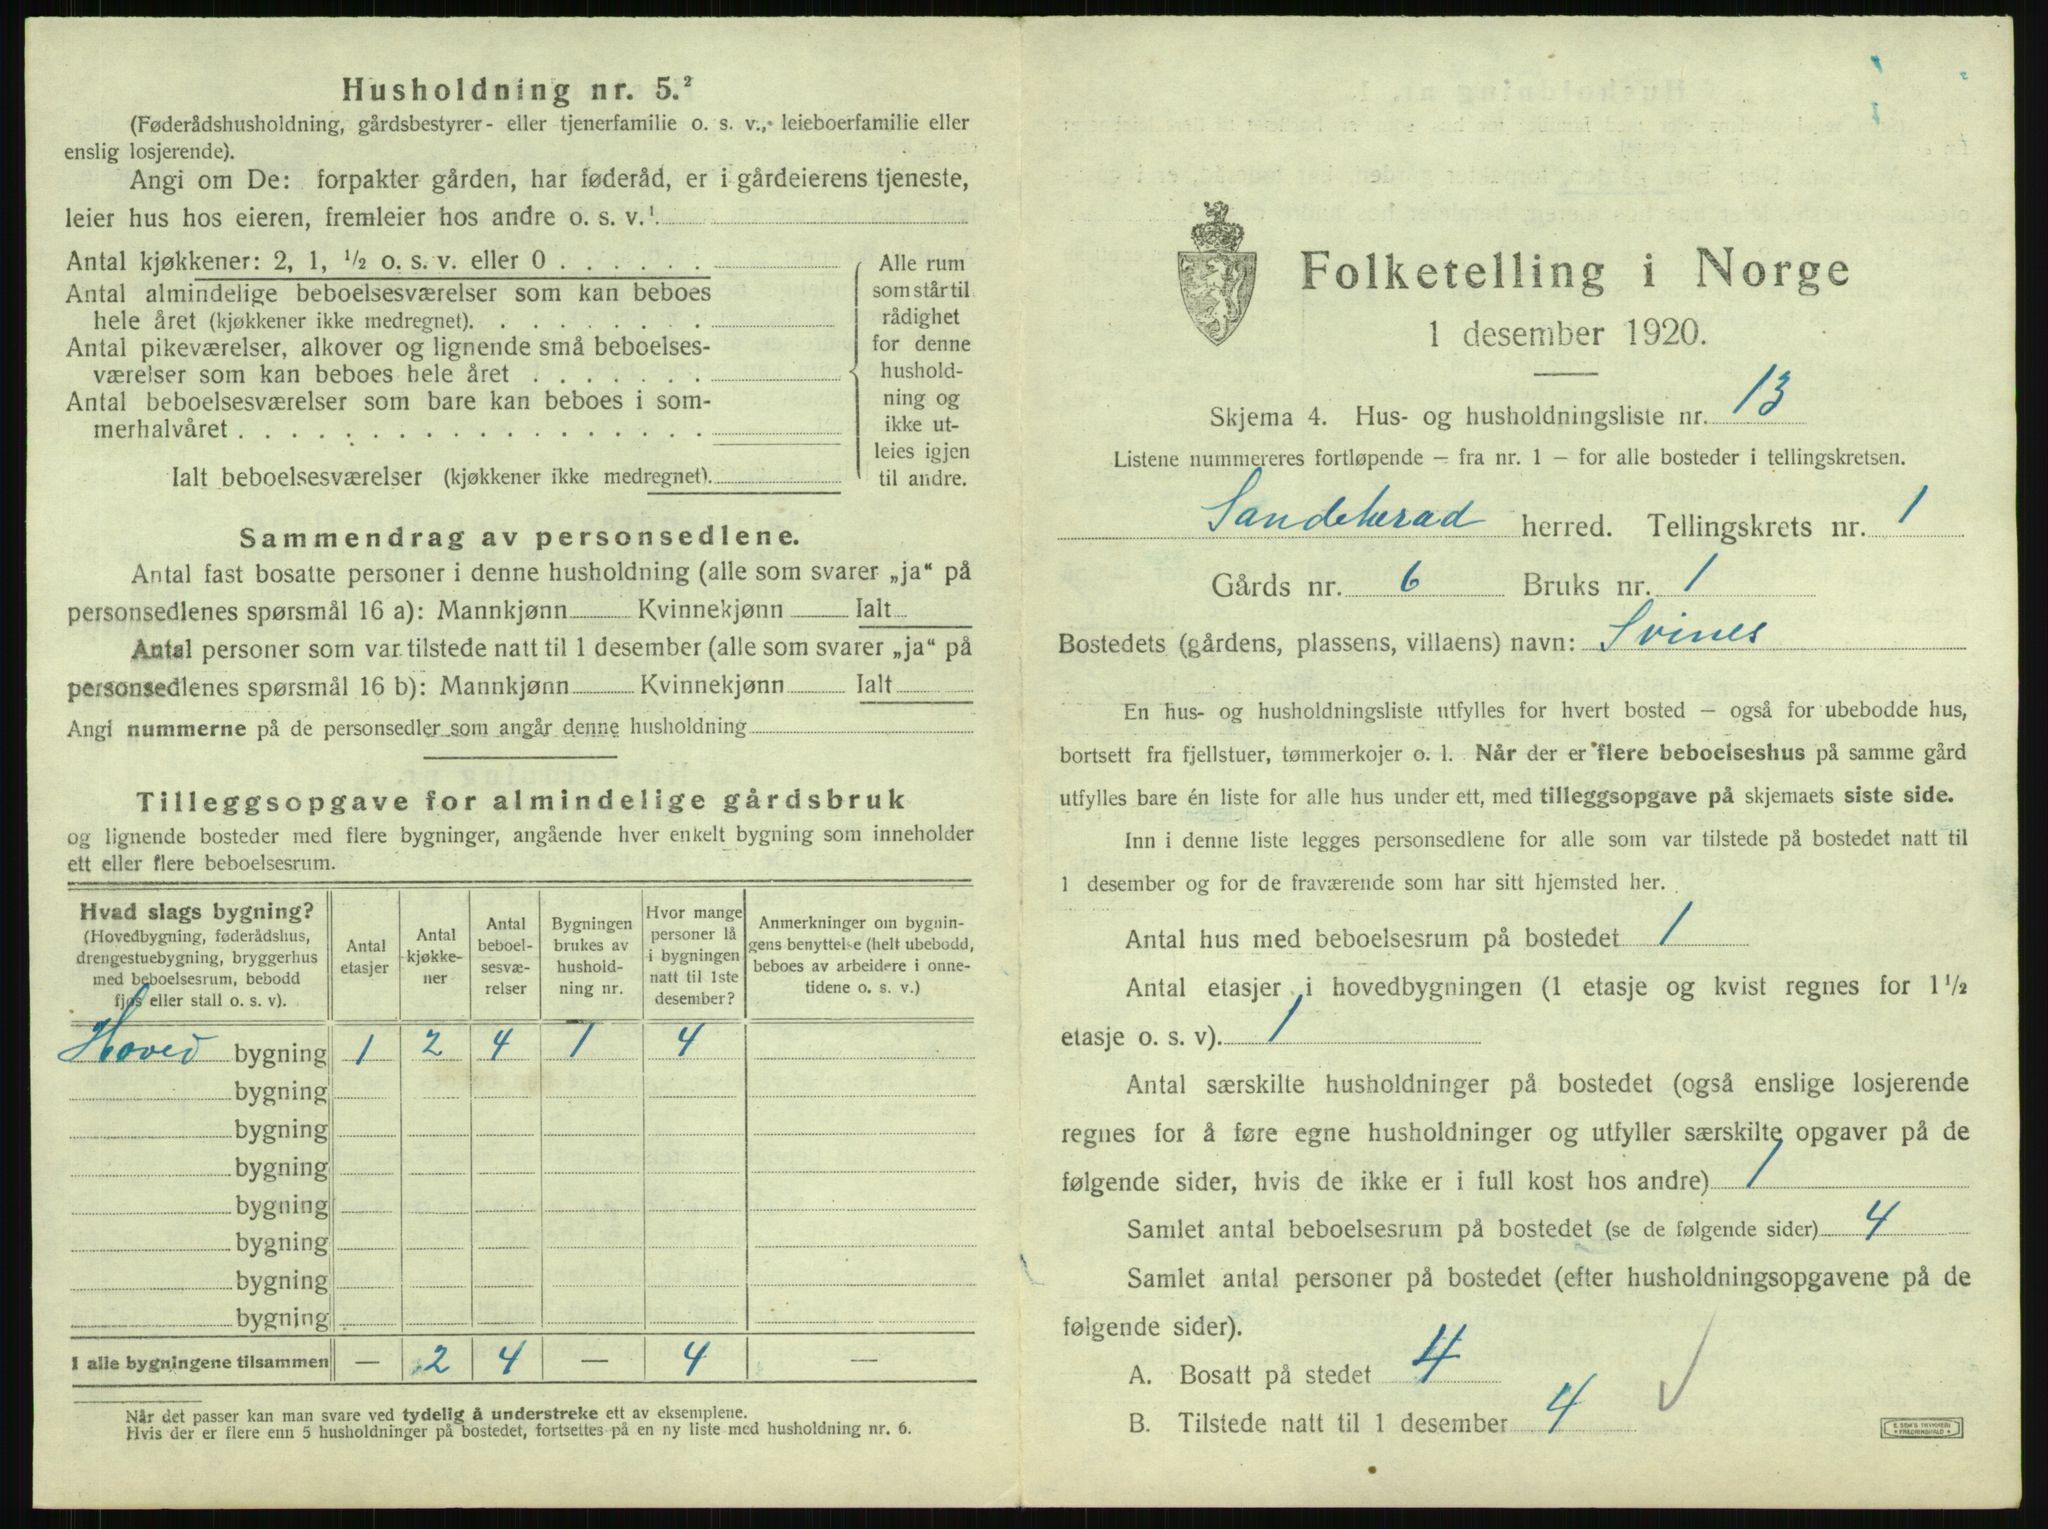 Husholdning nr. 5.²
(Føderådshusholdning, gårdsbestyrer- eller tjenerfamilie o. s. v., leieboerfamilie eller
enslig losjerende).
Angi om De: forpakter gården, har føderåd, er i gårdeierens tjeneste,
leier hus hos eieren, fremleier hos andre o. s. v.¹
Antal kjøkkener: 2, 1, ½ o. s. v. eller 0
Antal almindelige beboelsesværelser som kan beboes
hele året (kjøkkener ikke medregnet).
Antal pikeværelser, alkover og lignende små beboelses-
værelser som kan beboes hele året
Antal beboelsesværelser som bare kan beboes i som-
merhalvåret
Ialt beboelsesværelser (kjøkkener ikke medregnet).
Alle rum
som står til
rådighet
for denne
hushold-
ning og
ikke ut-
leies igjen
til andre.
Sammendrag av personsedlene.
Antal fast bosatte personer i denne husholdning (alle som svarer „ja“ på
personsedlenes spørsmål 16 a): Mannkjønn Kvinnekjønn Ialt
Antal personer som var tilstede natt til 1 desember (alle som svarer „ja“ på
personsedlenes spørsmål 16 b): Mannkjønn Kvinnekjønn Ialt
Angi nummerne på de personsedler som angår denne husholdning
Tilleggsopgave for almindelige gårdsbruk
og lignende bosteder med flere bygninger, angående hver enkelt bygning som inneholder
ett eller flere beboelsesrum.
Hvad slags bygning?
(Hovedbygning, føderådshus,
drengestuebygning, bryggerhus
med beboelsesrum, bebodd
fjøs eller stall o. s. v).
Antal
etasjer
Antal
kjøkke-
ner
Antal
beboel-
sesvæ-
relser
Bygningen
brukes av
hushold-
ning nr.
Hvor mange
personer lå
i bygningen
natt til 1ste
desember?
Anmerkninger om bygnin-
gens benyttelse (helt ubebodd,
beboes av arbeidere i onne-
tidene o. s. v.)
Hoved bygning 1 2 4 1 4
bygning
bygning
bygning
bygning
bygning
bygning
bygning
I alle bygningene tilsammen — 2 4 — 4 —
Når det passer kan man svare ved tydelig å understreke ett av eksemplene.
Hvis der er flere enn 5 husholdninger på bostedet, fortsettes på en ny liste med husholdning nr. 6.
Folketelling i Norge
1 desember 1920.
Skjema 4. Hus- og husholdningsliste nr. 13
Listene nummereres fortløpende — fra nr. 1 — for alle bosteder i tellingskretsen.
Sandeherad herred. Tellingskrets nr. 1
Gårds nr. 6 Bruks nr. 1
Bostedets (gårdens, plassens, villaens) navn: Svines
En hus- og husholdningsliste utfylles for hvert bosted — også for ubebodde hus,
bortsett fra fjellstuer, tømmerkojer o. l. Når der er flere beboelseshus på samme gård
utfylles bare én liste for alle hus under ett, med tilleggsopgave på skjemaets siste side.
Inn i denne liste legges personsedlene for alle som var tilstede på bostedet natt til
1 desember og for de fraværende som har sitt hjemsted her.
Antal hus med beboelsesrum på bostedet 1
Antal etasjer i hovedbygningen (1 etasje og kvist regnes for 1 1/2
etasje o. s. v). 1
Antal særskilte husholdninger på bostedet (også enslige losjerende
regnes for å føre egne husholdninger og utfyller særskilte opgaver på de
følgende sider, hvis de ikke er i full kost hos andre) 1
Samlet antal beboelsesrum på bostedet (se de følgende sider) 4
Samlet antal personer på bostedet (efter husholdningsopgavene på de
følgende sider).
A. Bosatt på stedet 4
B. Tilstede natt til 1 desember 4